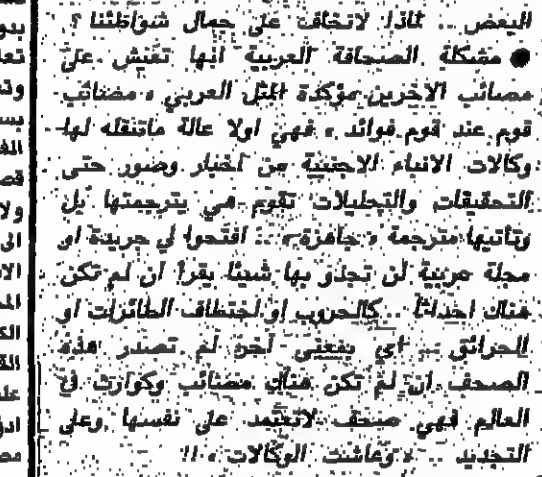 البعض .. لماذا لانحافظ على جمال شواطئنا ؟
● مشكلة الصحافة العربية انها تفتش على
مصائب الاخرين مؤكدة المثل العربي « مصائب
قوم عند قوم فوائد » فهي اولا عالة ماتنقله لها
وكالات الانباء الاجنبية من اخبار وصور حتى
التحقيقات والتحليلات تقوم هي بترجمتها بل
وتاتيها مترجمة « جاهزة » .. افتحوا لي جريدة او
مجلة عربية لن تجدو بها شيئا يقرا ان لم تكن
هناك احداثا .. كالحروب او اختطاف الطائرات او
الحرائق .. اي بمعنى اخر لم تصدر هذه
الصحف ان لم تكن هناك مصائب وكوارث في
العالم فهي صحف لاتعتمد على نفسها وعلى
التجديد .. « وعاشت الوكالات » !!